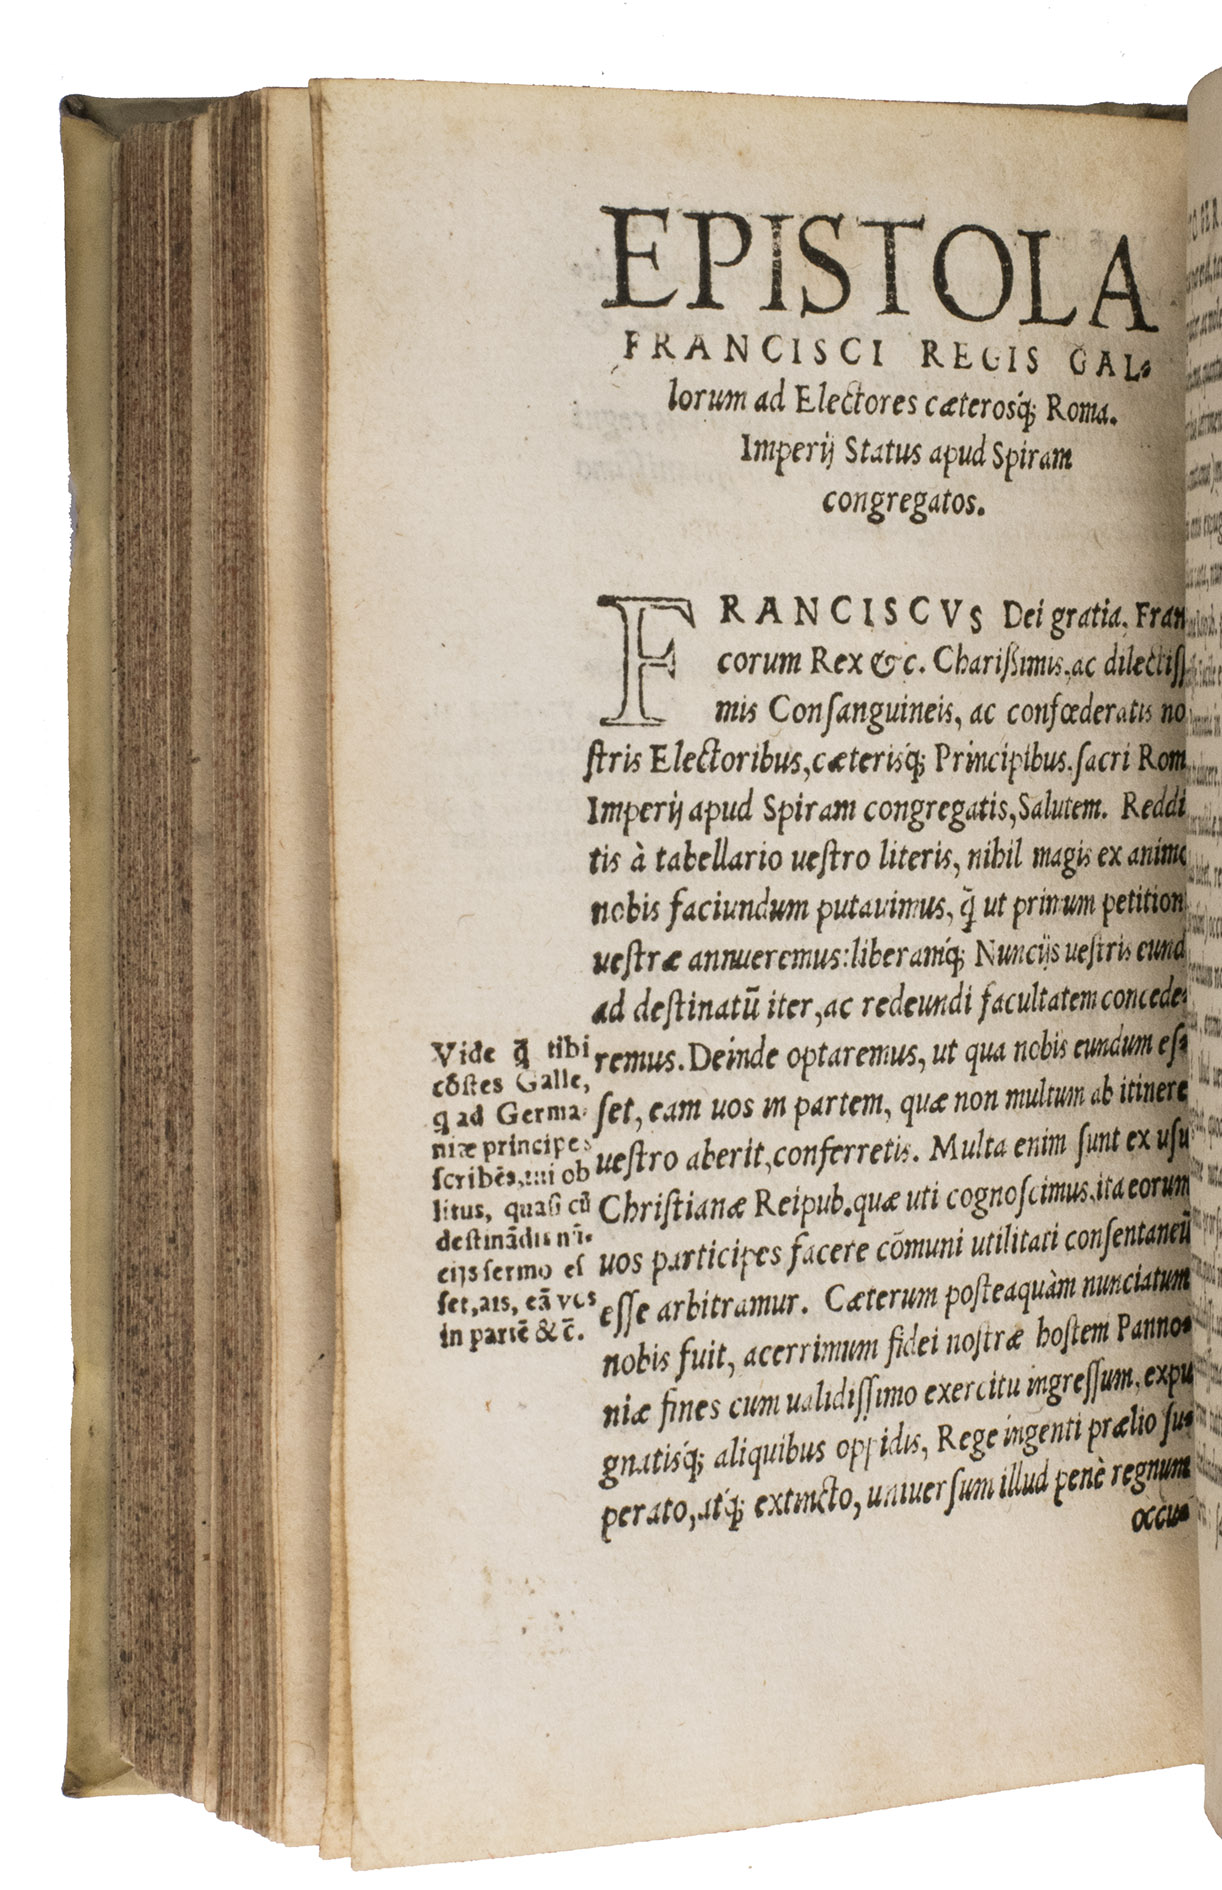 EPISTOLA
FRANCISCI REGIS GAL-
lorum ad Electores cæterosq́; Roma.
Imperij Status apud Spiram
congregatos.
FRANCISCVS Dei gratia, Fran
corum Rex &c. Charißimis, ac dilectiſſ
mis Conſanguineis, ac confœderatis no
ſtris Electoribus, cæterisq́; Principibus. ſacri Rom
Imperij apud Spiram congregatis, Salutem. Reddi
tis à tabellario ueſtro literis, nihil magis ex animo
nobis faciundum putauimus, q̃ ut primum petition
ueſtræ annueremus: liberamq́; Nuncijs ueſtris eund
ad deſtinatũ iter, ac redeundi facultatem concede-
remus. Deinde optaremus, ut qua nobis eundum eſ-
ſet, eam uos in partem, quæ non multum ab itinere
ueſtro aberit, conferretis. Multa enim ſunt ex uſu
Chriſtianæ Reipub. quæ uti cognoſcimus, ita eorum
uos participes facere cõmuni utilitati conſentaneũ
eſſe arbitramur. Cæterum poſteaquàm nunciatum
nobis fuit, acerrimum fidei noſtræ hoſtem Panno-
niæ fines cum ualidiſſimo exercitu ingreſſum, expu
gnatisq́; aliquibus oppidis, Rege ingenti prælio ſu-
perato, atq́; extincto, uniuerſum illud penè regnum
occu-
Vide q̃ tibi
cõſtes Galle,
q ad Germa-
niæ principes
ſcribẽs, ui ob
litus, quaſi cũ
deſtinãdis nũ-
cijs ſermo eſ
ſet, ais, eã vos
in partẽ & c̃.